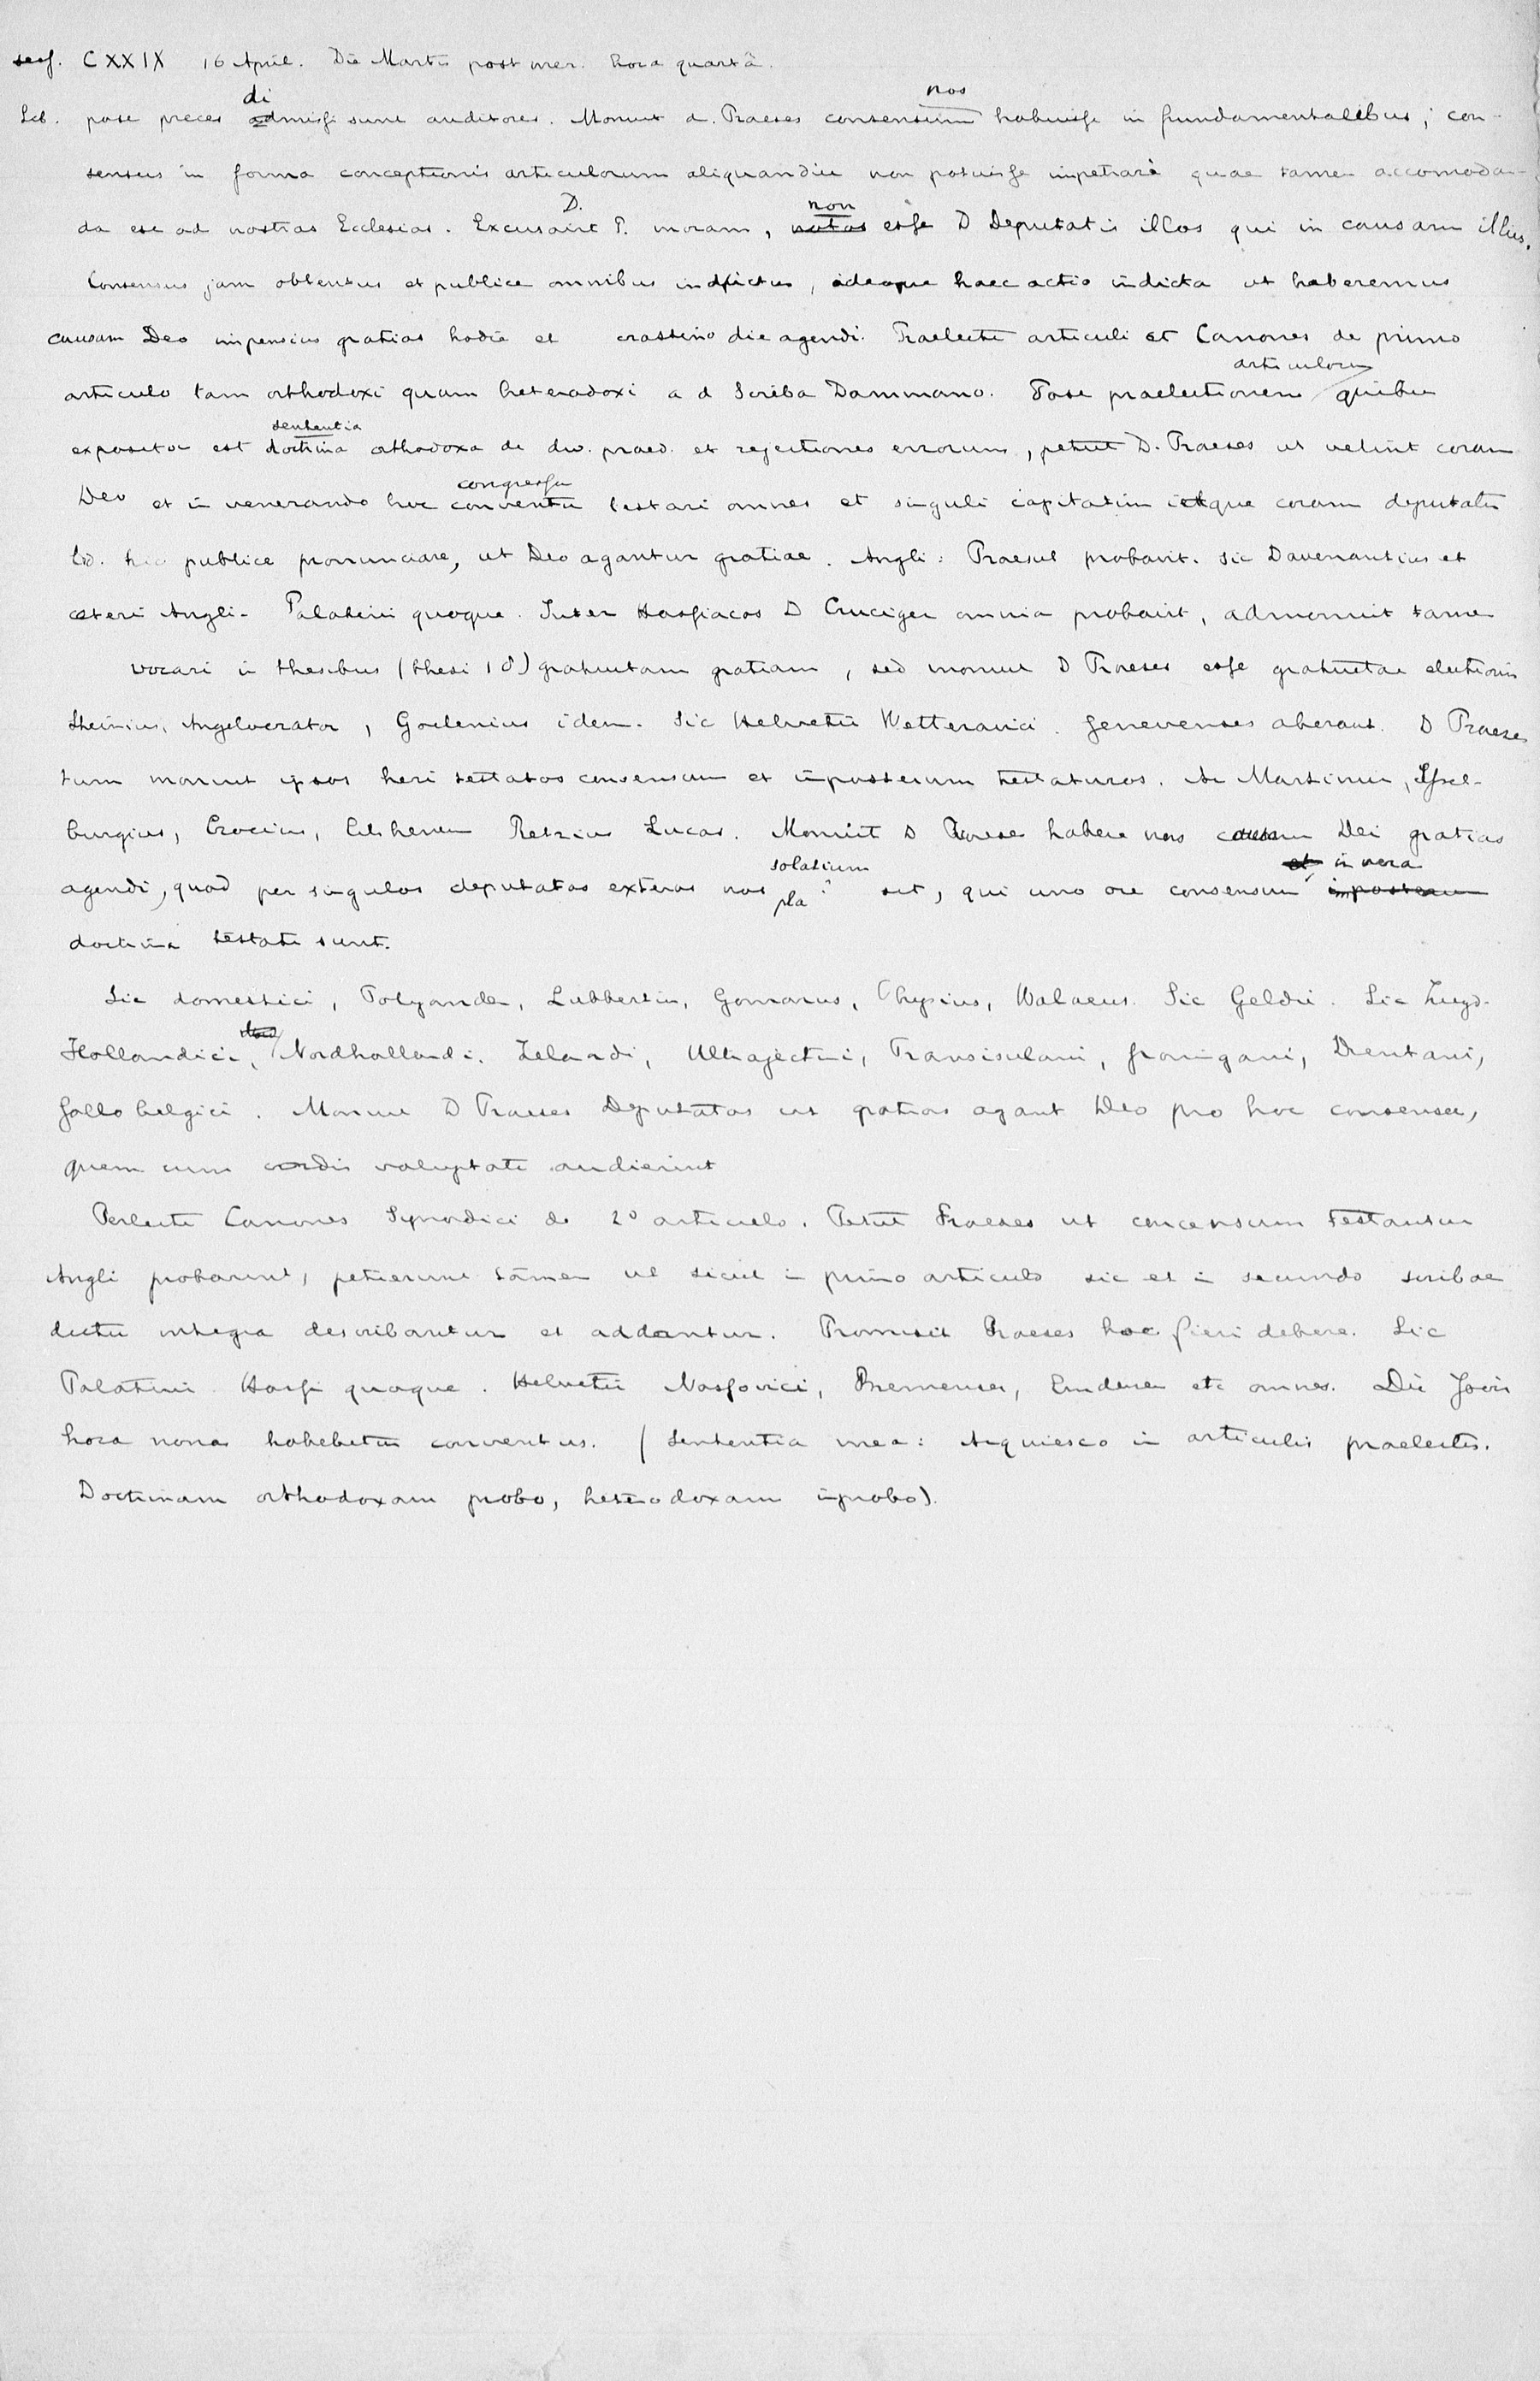 sess. CXXIX 16 April. Die Martis post mer. hora quartâ.
di nos
Seb. post preces admissi sunt auditores. Monuit d. Praeses consensum habuisse in fundamentalibus; con-
sensus in forma conceptionis articulorum aliquandiu non potuisse impetrari quae tamen accomodan-
D. non
da est ad nostras Ecclesias. Excusavit P. moram, notos esse D Deputatis illos qui in causam illius.
Consensus jam obtentus et publice omnibus indictus, ideoque haec actio indicta ut haberemus
causam Deo impensius gratias hodie et crastino die agendi. Praelecti articuli et Canones de primo
articulorum
articulo tam orthodoxi quam heterodoxi a d Scriba Dammano. Post praelectionem quibus
sententia
exposita est doctrina orthodoxa de div. praed. et rejectiones errorum, petiit D. Praeses ut velint coram
congressu
Deo et in venerando hoc conventu testari omnes et singuli capitatim idque coram deputatis
Ord. hic publice pronunciare, ut Deo agantur gratiae. Angli: Praesul probavit. Sic Davenantius et
ceteri Angli. Palatini quoque. Inter Hassiacos D Cruciger omnia probavit, admonuit tamen
vocari in thesibus (thesi 18) gratuitam gratiam, sed monuit D Praeses esse gratuitae electionis
Steinius, Angelocrator, Goclenius idem. Sic Helvetii Wetteravici. Genevenses aberant. D Praeses
tum monuit ipsos heri testatos consensum et imposterum testaturos. At Martinius, Issel-
burgius, Crocius, Eilshemius Retzius Lucas. Monuit D Praeses habere nos causam Dei gratias
solatium et in vera
agendi, quod per singulos deputatos exteros nos pla ? sit, qui uno ore consensum imposterum
doctrina testati sunt.
Sic domestici, Polyander, Lubbertus, Gomarus, Thysius, Walaeus. Sic Geldri. Sic Zuyd-
Hollandici, Nordhollandi. Zelandi, Ultrajectini, Transisulani, Groningani, Drentani,
Gallobelgici. Monuit D Praeses Deputatos ut gratias agant Deo pro hoc consensu,
quem cum cordis voluptate audierint
Perlecti Canones Synodici de 2º articulo. Petiit Praeses ut concensum testantur
Angli probarunt, petierunt tamen ut sicut in primo articulo sic et in secundo scribae
dicta integra describantur et addantur. Promisit Praeses hoc fieri debere. Sic
Palatini Hassi quoque. Helvetii Nassovici, Bremenses, Emdenses etc omnes. Die Jovis
hora nona habebitur conventus. (Sententia mea: Acquiesco in articulis praelectis.
Doctrinam orthodoxam probo, heterodoxam improbo).